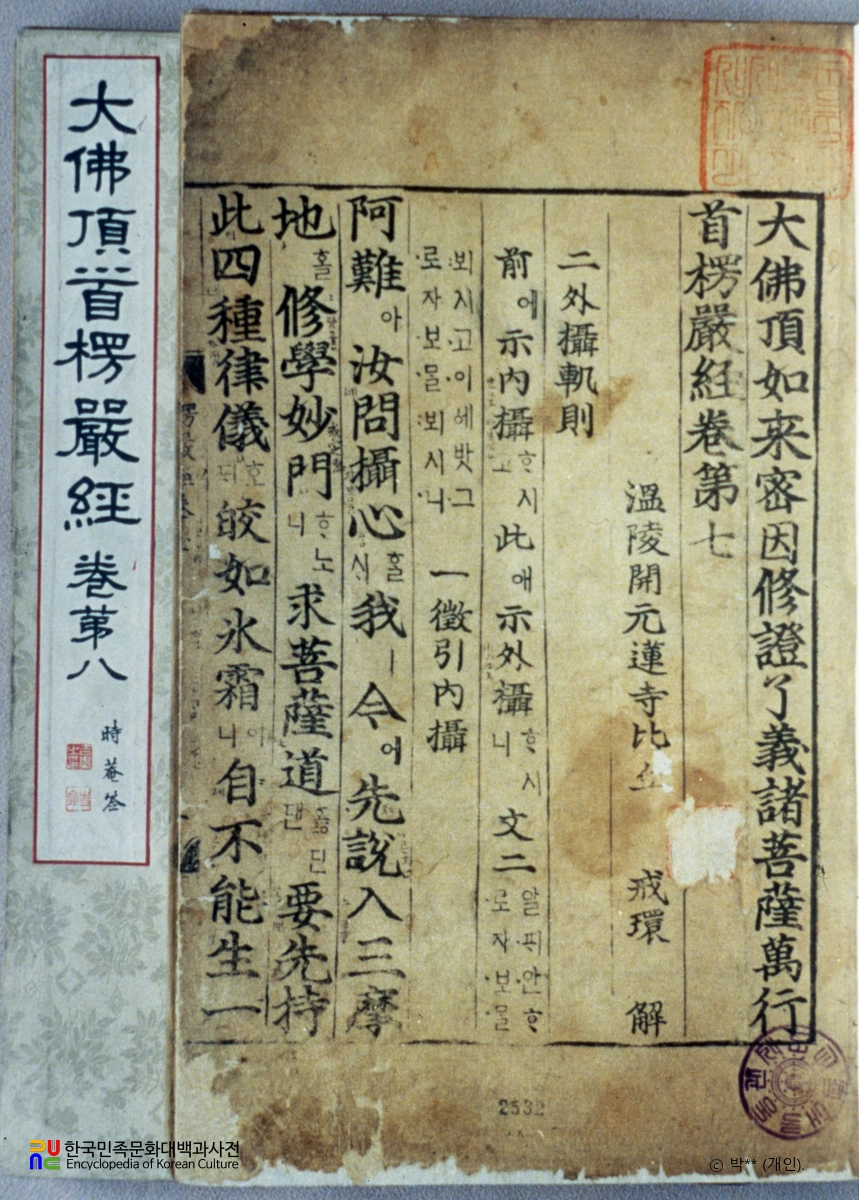 大佛頂首楞嚴經 卷第八
時菴签
大佛頂如来密因修證了義諸菩薩萬行
首楞嚴經卷第七
溫陵開元蓮寺比丘 戒環 解
二外攝軌則
前에示內攝ᄒᆞ시고此애示外攝ᄒᆞ시니文二알ᄑᆡ안ᄒᆞ로자보ᄆᆞᆯ
뵈시고이ᅌᅦ밧그로자보ᄆᆞᆯ뵈시니 一徵引內攝
阿難아汝問攝心ᄒᆞᆯᄉᆡ我ㅣ今에先說入三摩
地ᄒᆞᆯ修學妙門ᄒᆞ노니求菩薩道ᄒᆞᇙ딘댄要先持
此四種律儀호ᄃᆡ皎如氷霜이니自不能生一
2532
한국민족문화대백과사전
Encyclopedia of Korean Culture
© 박** (개인).